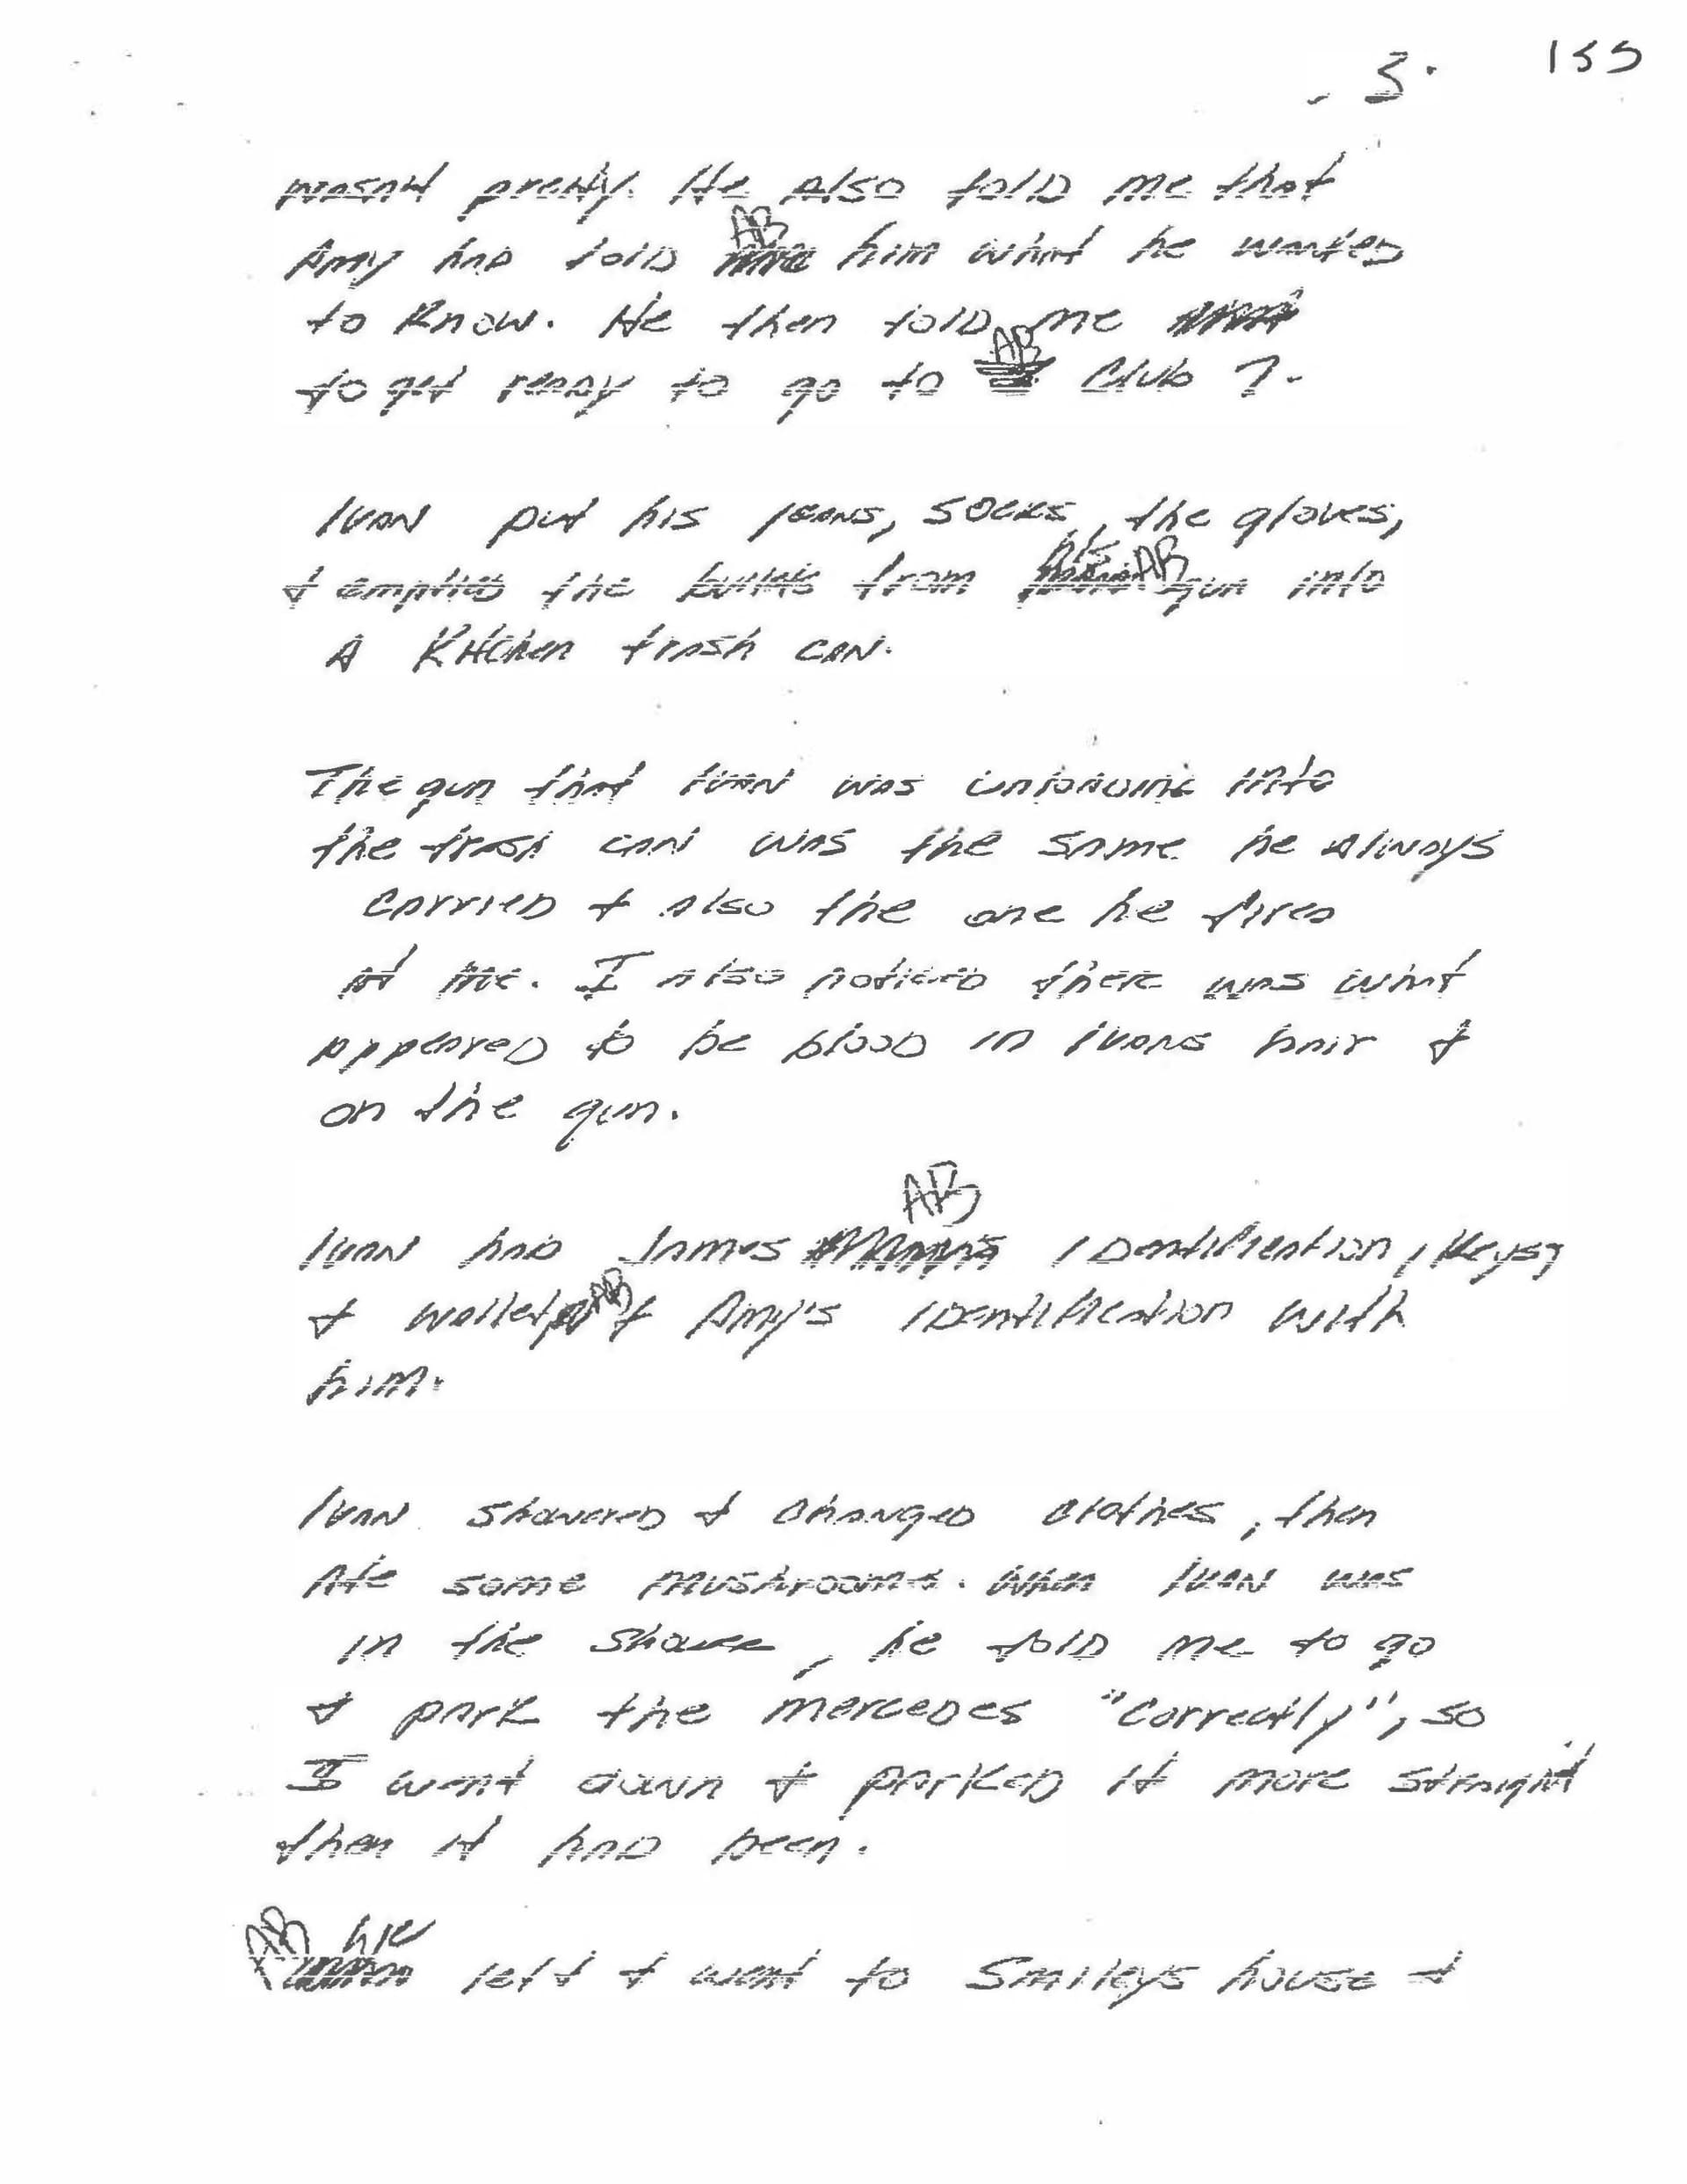 3. 155
wasnt pretty. He also told me that
AB
Amy had told him what he wanted
to know. He then told me
AB
to get ready to go to Club 7.
Ivan put his jeans, socks, the gloves,
his AB
& emptied the bullets from gun into
A Kitchen trash can.
The gun that Ivan was unloading into
the trash can was the same he always
carried & also the one he fired
at me. I also noticed there was what
appeared to be blood in Ivans hair &
on the gun.
AB
Ivan had James Identification, Keys,
AB
& wallet & Amy's Identification with
him.
Ivan showered & changed clothes, then
Ate some mushrooms. When Ivan was
in the shower, he told me to go
& park the mercedes "correctly", so
I went down & parked it more straight
then it had been.
AB
left & went to Smileys house &